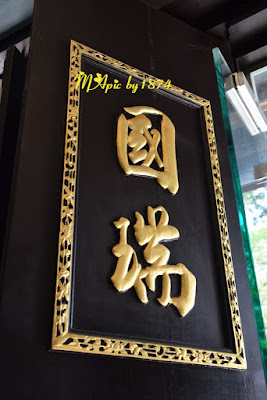 MApic by1874
國
瑞